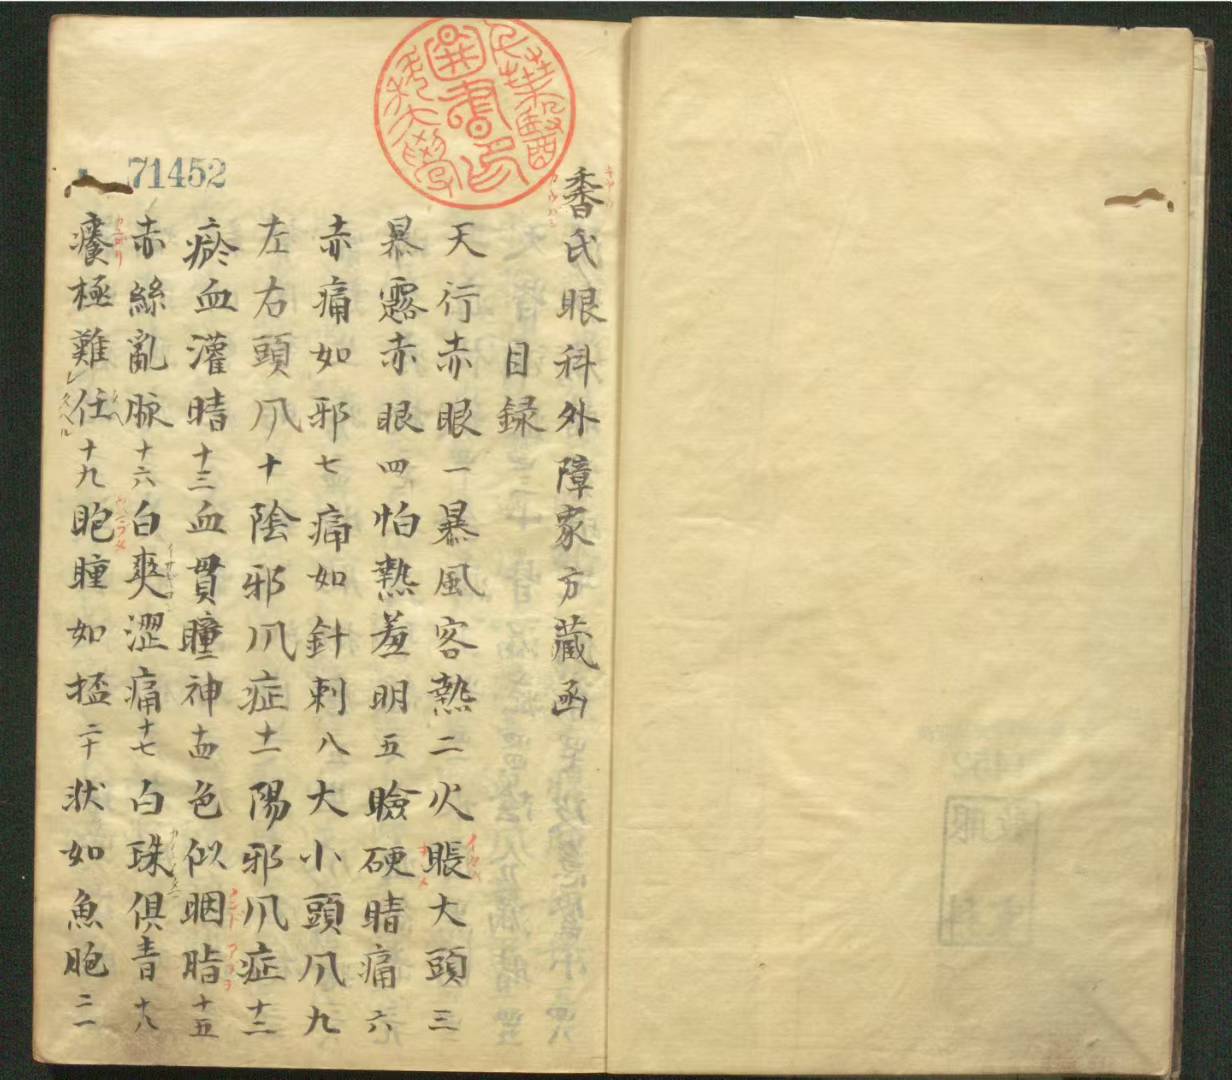 香氏眼科外障家方蔵函
目録
天行赤眼一暴風客熱二火脹大頭三
暴露赤眼四怕熱羞明五瞼硬睛痛六
赤痛如邪七痛如針刺八大小頭爪九
左右頭爪十陰邪爪症十一陽邪爪症十二
瘀血灌睛十三血貫瞳神十四色似胭脂十五
赤絲亂脉十六白爽澀痛十七白珠俱青十八
癢極難任十九胞瞳如二十状如魚胞二一
71452